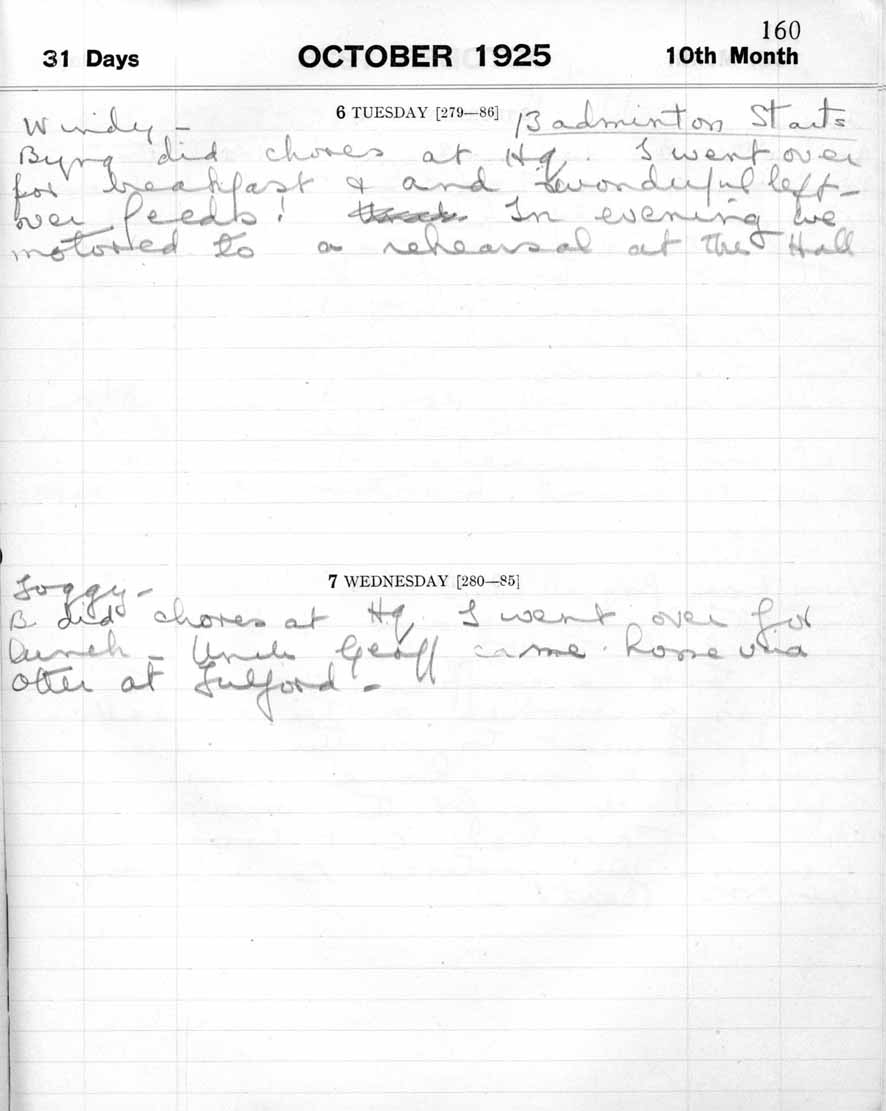 160
31 Days OCTOBER 1925 10th Month
6 TUESDAY [279—86]
Windy - Badminton Starts
Byng did chores at Hq. I went over
for breakfast & and wonderful left-
over feeds! In evening we
motored to a rehearsal at the Hall
7 WEDNESDAY [280—85]
Foggy -
B did chores at Hq. I went over for
lunch - Uncle Geoff came home via
Otter at Fulford -